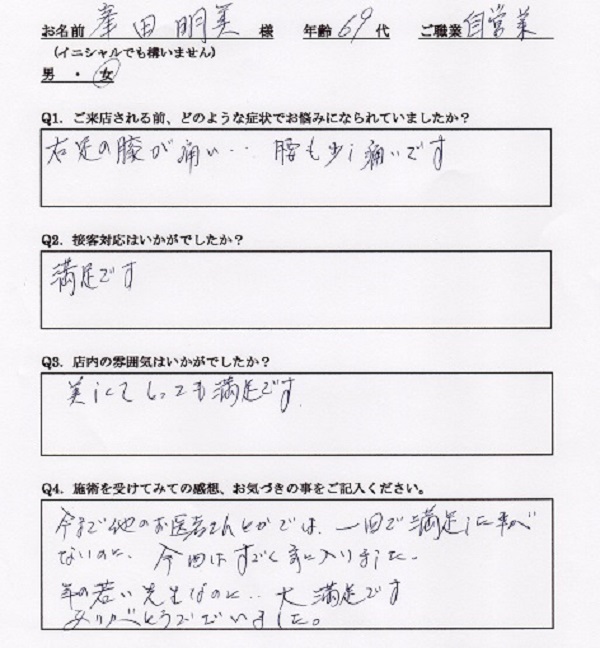 お名前 峯田明美 様 年齢 69 代 ご職業 自営業
(イニシャルでも構いません)
男 ・ 女
Q1. ご来店される前、どのような症状でお悩みになられていましたか?
右足の膝が痛い‥ 腰も少し痛いです
Q2. 接客対応はいかがでしたか?
満足です
Q3. 店内の雰囲気はいかがでしたか?
とっても満足です
Q4. 施術を受けてみての感想、お気づきの事をご記入ください。
今まで他のお医者さんとかでは、一回で満足した事が
ないのに、今回はすごく気に入りました。
年の若い先生なのに‥ 大満足です
ありがとうございました。